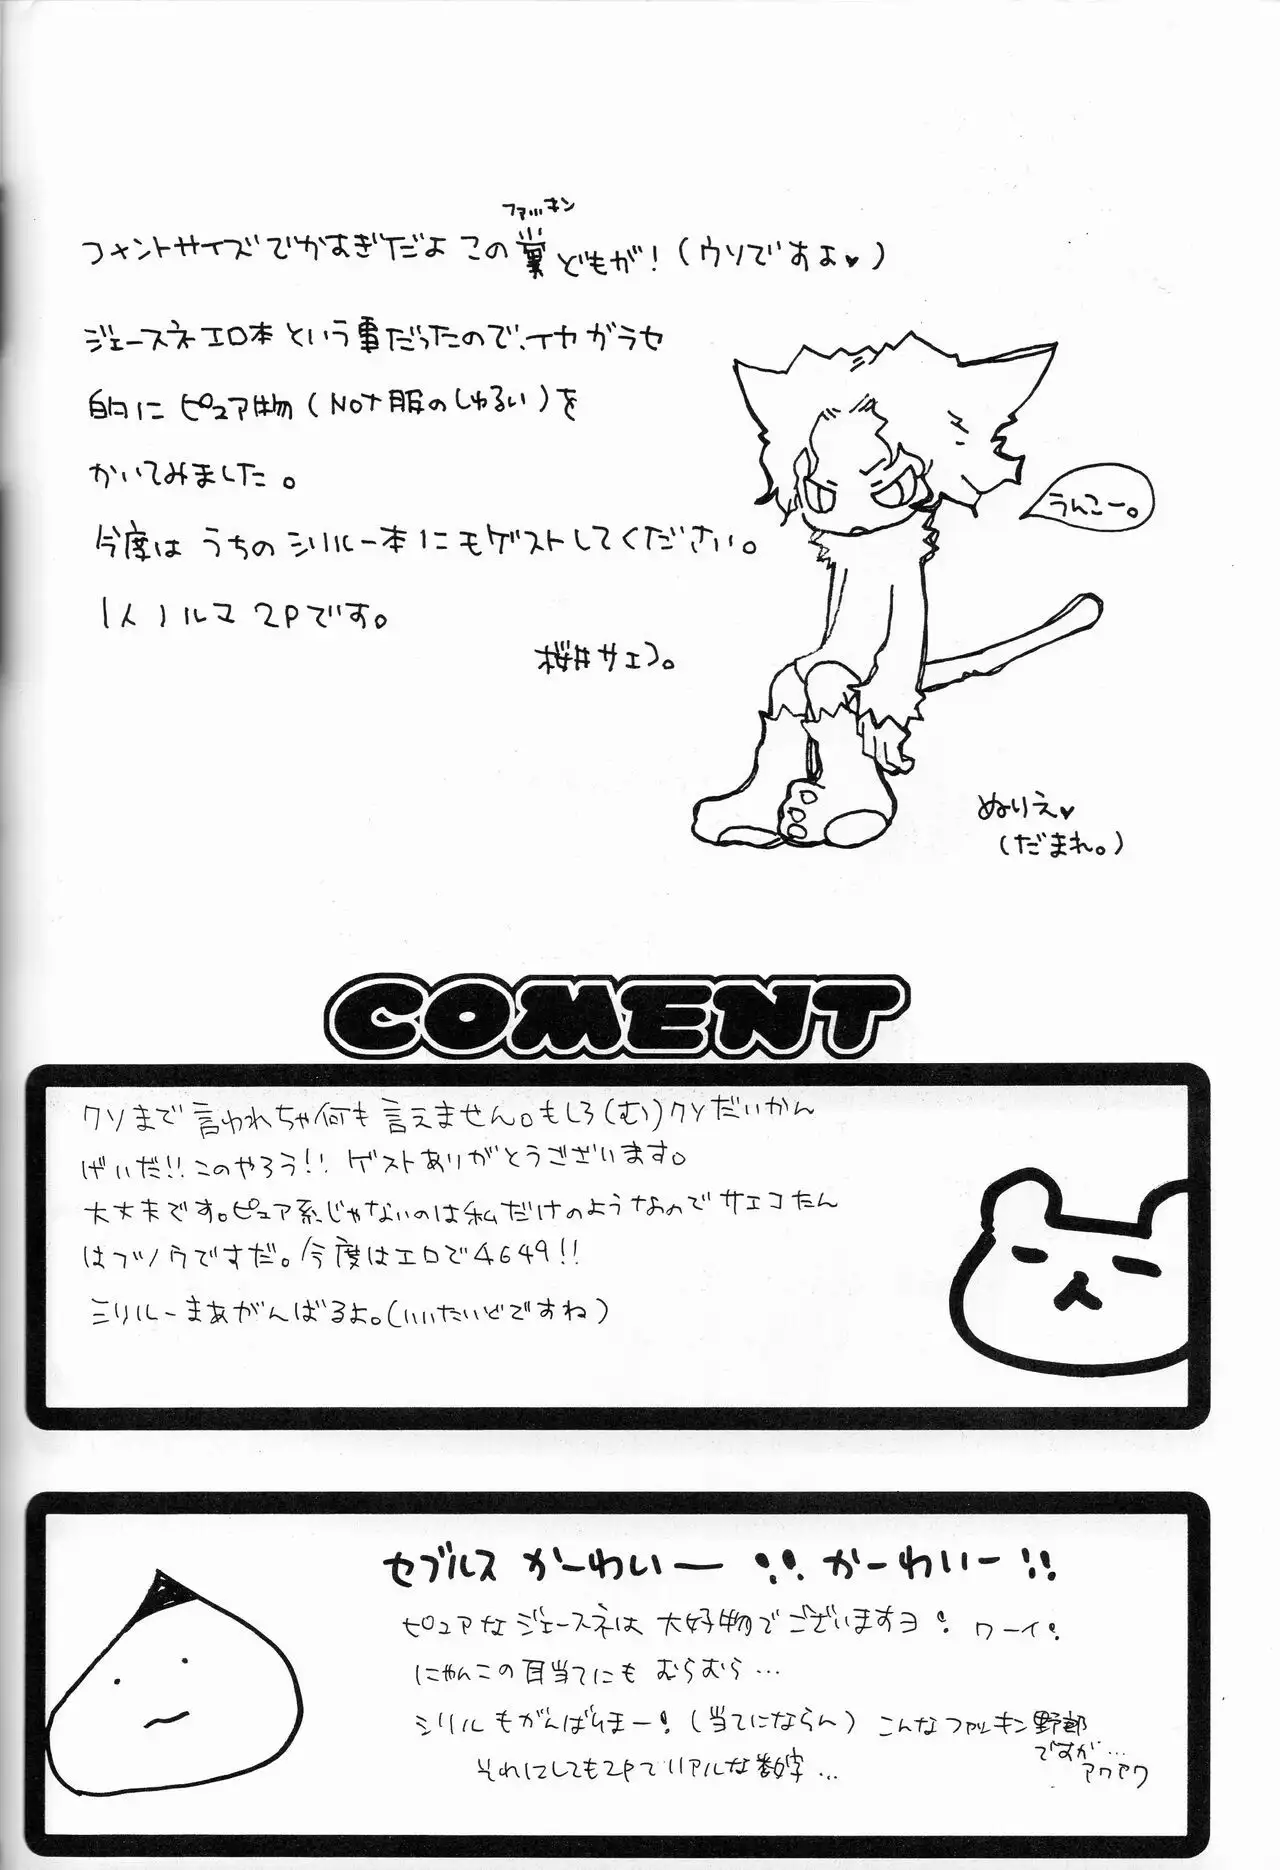 ファッキン
コメントサイズでかすぎだよ この糞どもが!(ウソですよ♥)
ジェースネエロ本という事だったので、イヤガラセ
的にピュア物(NOT服のしゅるい)を
かいてみました。
今度はうちのシリルー本にもゲストしてください。
1人ノルマ2Pです。
桜井サエコ。
うんこー。
ぬりえ♥
(だまれ。)
COMENT
クソまで言われちゃ何も言えません。もしろ(む)クソだいかん
げいだ!!このやろう!! ゲストありがとうございます。
大丈夫です。ピュア系じゃないのは私だけのようなのでサエコたん
はブノウですだ。今度はエロで4649!!
シリルーまあがんばるよ。(いいたいどですね)
セブルス かーわいー!! かーわいー!!
ピュアなジェースネは大好物でございますヨ! ワーイ!
にゃんこの目当てにも むらむら…
シリルもがんばりまー!(当てにならん) こんなファッキン野郎
ですが…
アワアワ
それにしても2Pてリアルな数字…